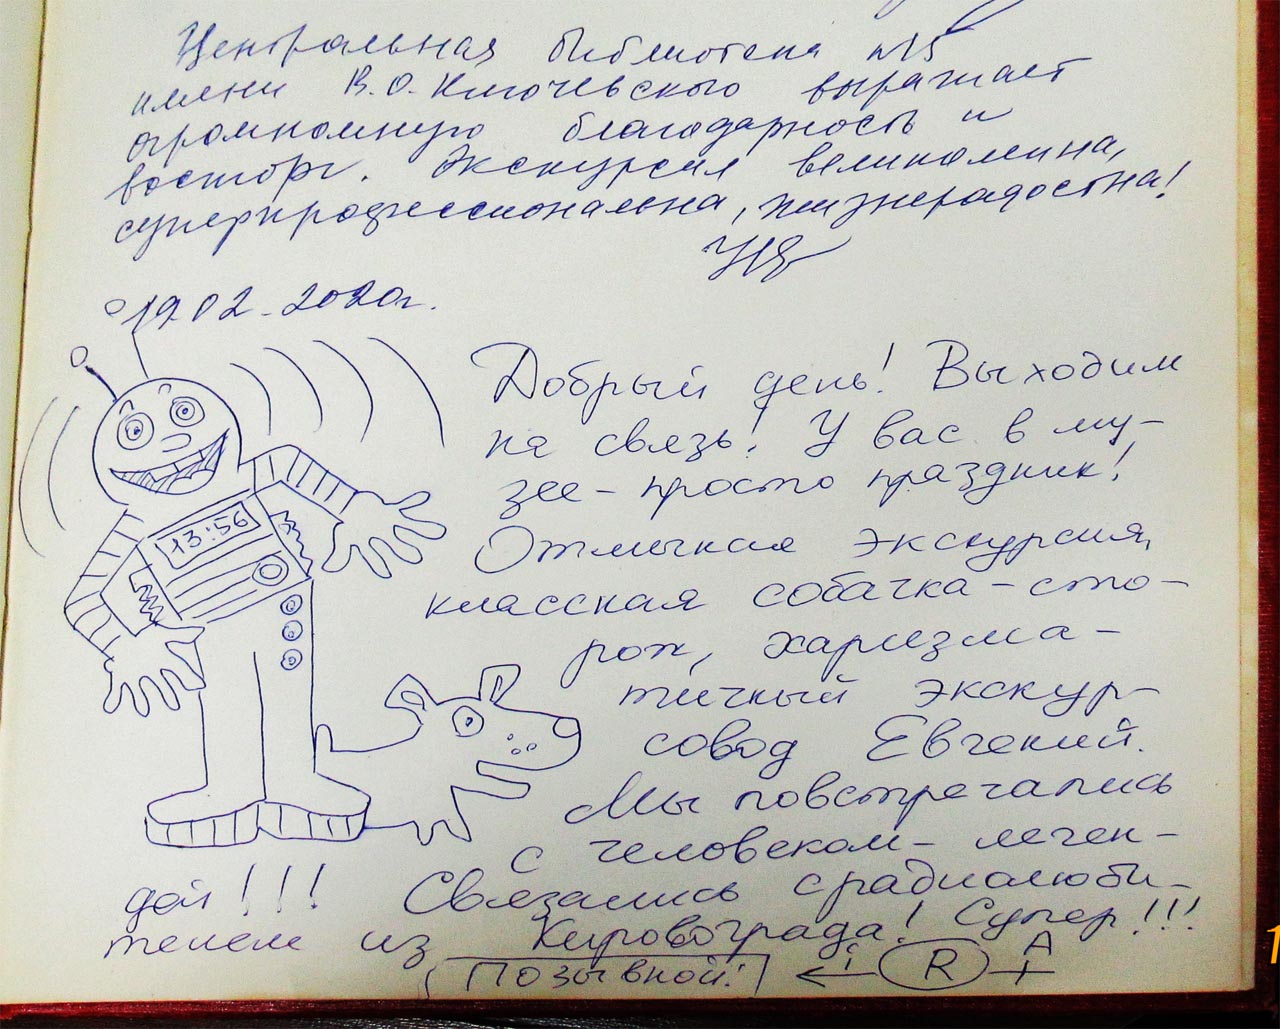 Центральная библиотека №15
имени В.О. Ключевского выражает
огромномную благодарность и
восторг. Экскурсия великолепна,
суперпрофессиональна, жизнерадостна!
19.02.2020г.
13:56
Добрый день! Выходим
на связь! У вас в му-
зее - просто праздник!
Отличная экскурсия,
классная собачка - сто-
рож, харизма-
тичный экскур-
совод Евгений.
Мы повстречались
с человеком - леген-
дой!!! Связались с радиолюби-
телем из Кировограда! Супер!!!
Позывной: i R A